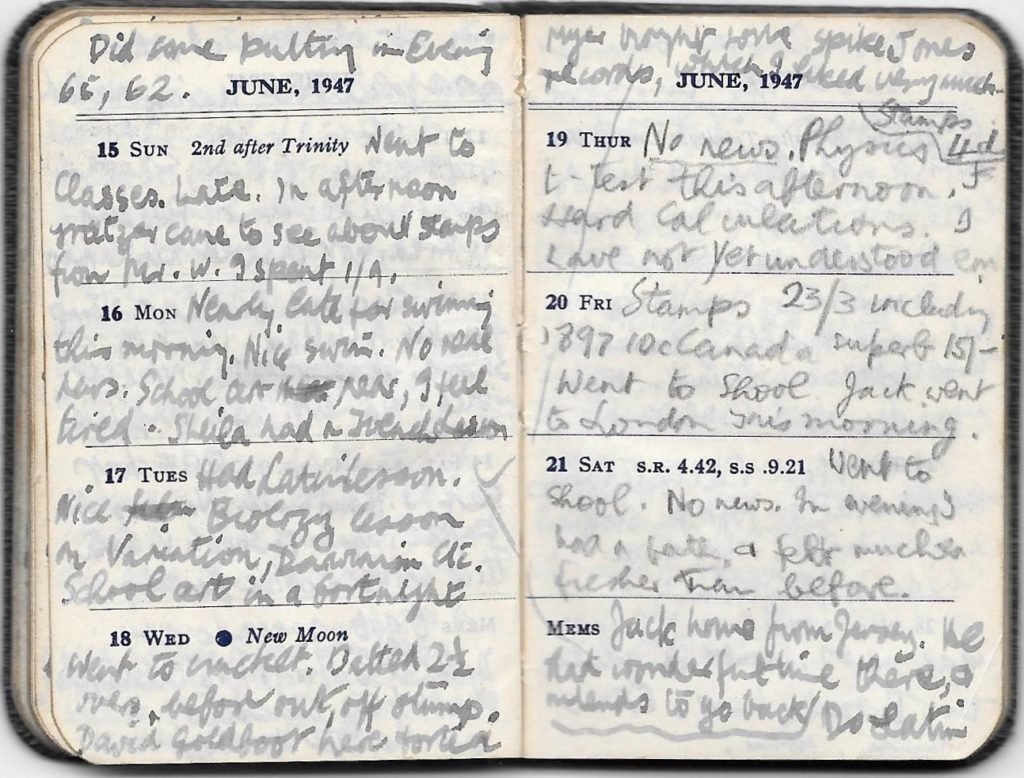 Did some putting in Evening
65, 62. JUNE, 1947
15 SUN 2nd after Trinity Went to
Classes. Late. In afternoon
came to see about stamps
from Mr. W. I spent 1/9.
16 MON Nearly late for swimming
this morning. Nice swim. No real
news. School cert near, I feel
tired. Sheila had a French lesson
17 TUES Had Latin lesson.
Nice Biology lesson
on Variation, Darwinian etc.
School cert in a fortnight
18 WED New Moon
Went to cricket. Batted 2½
overs, before out, off stump.
David here
bought some Spike Jones
records, which I liked very much.
JUNE, 1947
Stamps
19 THUR No news. Physics 4d
t-Test this afternoon.
Hard Calculations. I
have not yet understood
20 FRI Stamps 23/3 including
1897 10c Canada superb 15/-
Went to Shool Jack went
to London this morning.
21 SAT S.R. 4.42, S.S .9.21 Went to
Shool. No news. In evening I
had a bath, & felt much
fresher than before.
MEMS Jack home from Jersey. He
had wonderful time there, &
intends to go back/ Do Latin